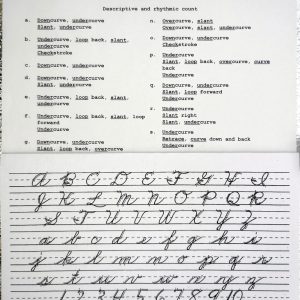 Descriptive and rhythmic count
a. Downcurve, undercurve
Slant, undercurve
b. Undercurve, loop back, slant,
undercurve
Checkstroke
c. Downcurve, undercurve
d. Downcurve, undercurve
Slant, undercurve
e. Undercurve, loop back, slant,
undercurve
f. Undercurve, loop back, slant, loop
forward
Undercurve
g. Downcurve, undercurve
Slant, loop back, overcurve
n. Overcurve, slant
Overcurve, slant, undercurve
o. Downcurve, undercurve
Checkstroke
p. Undercurve
Slant, loop back, overcurve, curve
back
Undercurve
q. Downcurve, undercurve
Slant, loop forward
Undercurve
r. Undercurve
Slant right
Slant, undercurve
s. Undercurve
curve down and back
Undercurve
A B C D E F G H I
J K L M N O P Q R
S T U V W X Y Z
a b c d e f g h i
j k l m n o p q r
s t u v w x y z
1 2 3 4 5 6 7 8 9 10